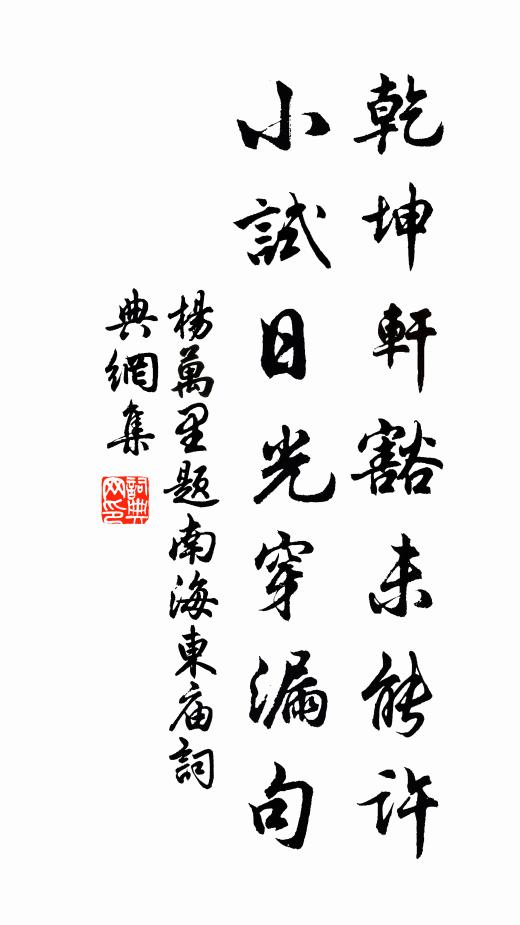 乾坤軒豁未能許
小試日光穿漏句
楊萬里題南海東庙詞
典網集
詞典网印